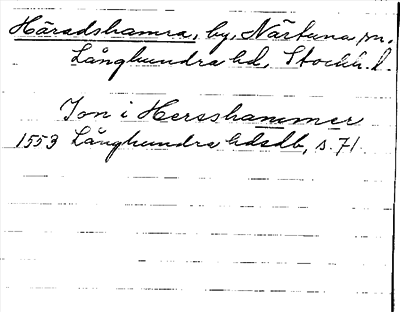 Häradshamra, by, Närtuna sn.
Långhundra hd, Stockh. l.
Jon i Hersshammer
1553 Långhundra hdsdb, s. 71.